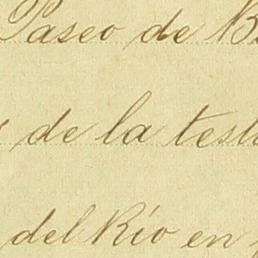 Paseo de B
de la test
del Río en